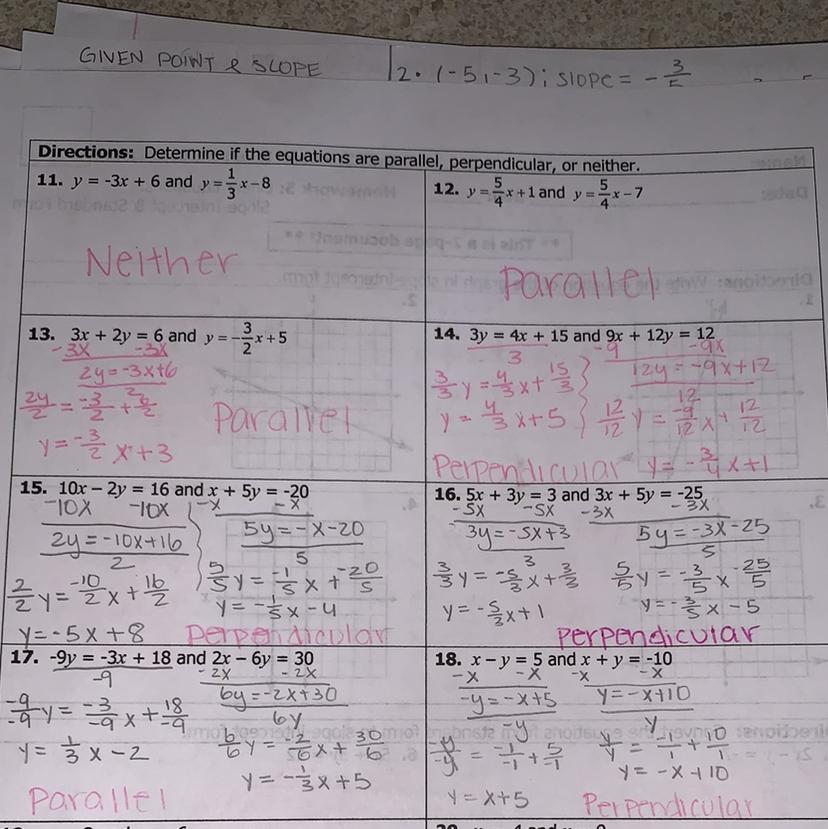 GIVEN POINT & SLOPE
12. (-5,-3); slope = -3/5
Directions: Determine if the equations are parallel, perpendicular, or neither.
11. y = -3x + 6 and y = 1/3 x - 8
Neither
12. y = 5/4 x + 1 and y = 5/4 x - 7
Parallel
13. 3x + 2y = 6 and y = -3/2 x + 5
-3x -3x
2y = -3x+6
2y/2 = -3/2 + 26/2
y = -3/2 x + 3
Parallel
14. 3y = 4x + 15 and 9x + 12y = 12
3
-9 -9x
12y = -9x+12
12
3/3 y = 4/3 x + 15/3
y = 4/3 x + 5
12/12 y = -9/12 x + 12/12
Perpendicular y = -3/4 x + 1
15. 10x – 2y = 16 and x + 5y = -20
-10x -10x -x -x
2y = -10x+16
2
5y = -x-20
5
2/2 y = -10/2 x + 16/2
5/5 y = -1/5 x + -20/5
y = -1/5 x - 4
y = -5x + 8 Perpendicular
16. 5x + 3y = 3 and 3x + 5y = -25
-5x -5x -3x -3x
3y = -5x+3
3
5y = -3x-25
5
3/3 y = -5/3 x + 3/3
5/5 y = -3/5 x -25/5
y = -5/3 x + 1
y = -3/5 x - 5
Perpendicular
17. -9y = -3x + 18 and 2x – 6y = 30
-9
-2x -2x
6y = -2x+30
6y
-9/-9 y = -3/-9 x + 18/-9
6/6 y = -2/6 x + 30/6
y = 1/3 x - 2
y = -1/3 x + 5
Parallel
18. x – y = 5 and x + y = -10
-x -x -x -x
-y = -x+5
-y
y = -x+10
y
-y/-y = -1/-1 + 5/-1
y/y = -1/1 + 10/1
y = -x + 10
y = x+5
Perpendicular